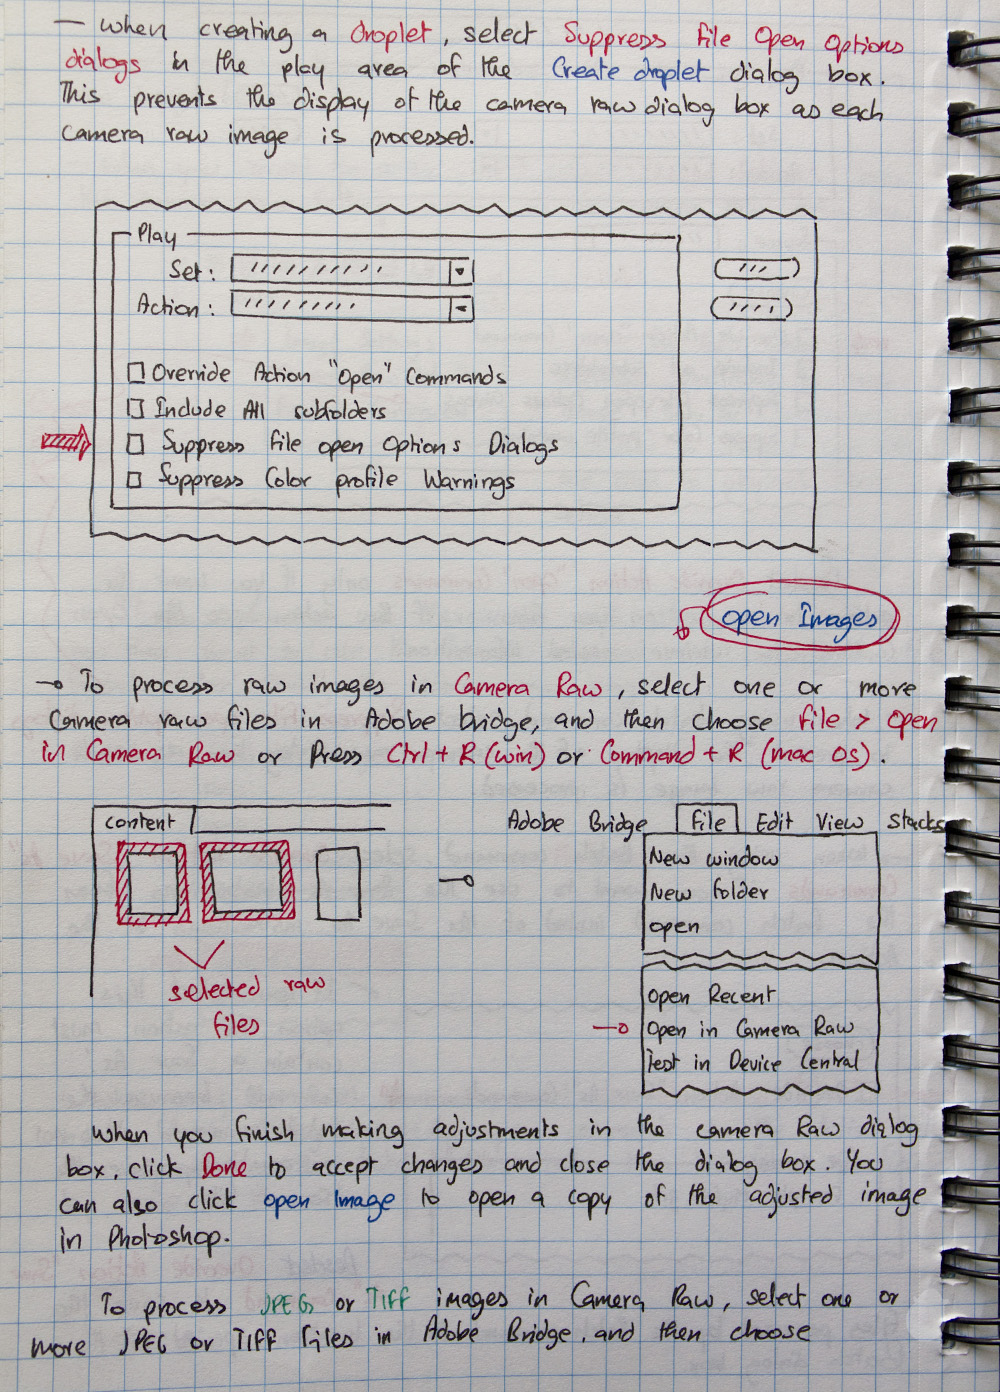 — When creating a droplet, select Suppress File Open Options
dialogs in the play area of the Create droplet dialog box.
This prevents the display of the camera raw dialog box as each
camera raw image is processed.
Play
Set:
Action:
Override Action "Open" Commands
Include All subfolders
Suppress file open Options Dialogs
Suppress Color profile Warnings
open Images
To process raw images in Camera Raw, select one or more
Camera raw files in Adobe bridge, and then choose file > open
in Camera Raw or Press Ctrl + R (win) or Command + R (mac OS).
content
selected raw
files
Adobe Bridge File Edit View Stacks
New window
New folder
open
Open Recent
Open in Camera Raw
Test in Device Central
When you finish making adjustments in the camera Raw dialog
box, click Done to accept changes and close the dialog box. You
can also click open Image to open a copy of the adjusted image
in Photoshop.
To process JPEGs or TIFF images in Camera Raw, select one or
more JPEG or TIFF files in Adobe Bridge, and then choose